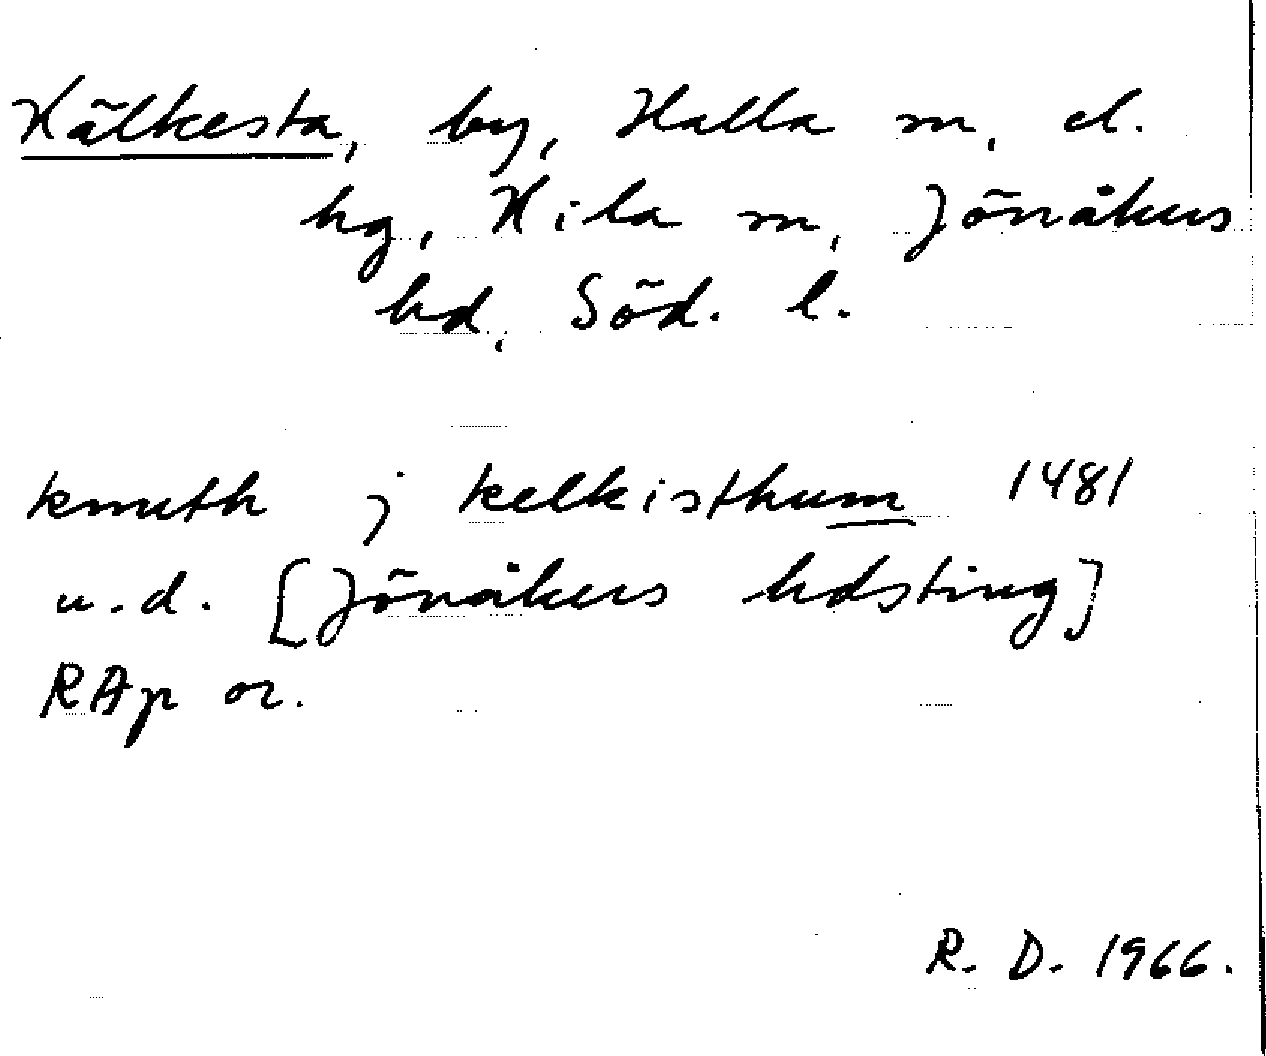 Kälkesta, by, Halla sn, el.
hg, Kila sn, Jönåkers
hd, Söd. l.
knuth j kelkisthum 1481
u.d. [Jönåkers hdsting]
RAp or.
R. D. 1966.